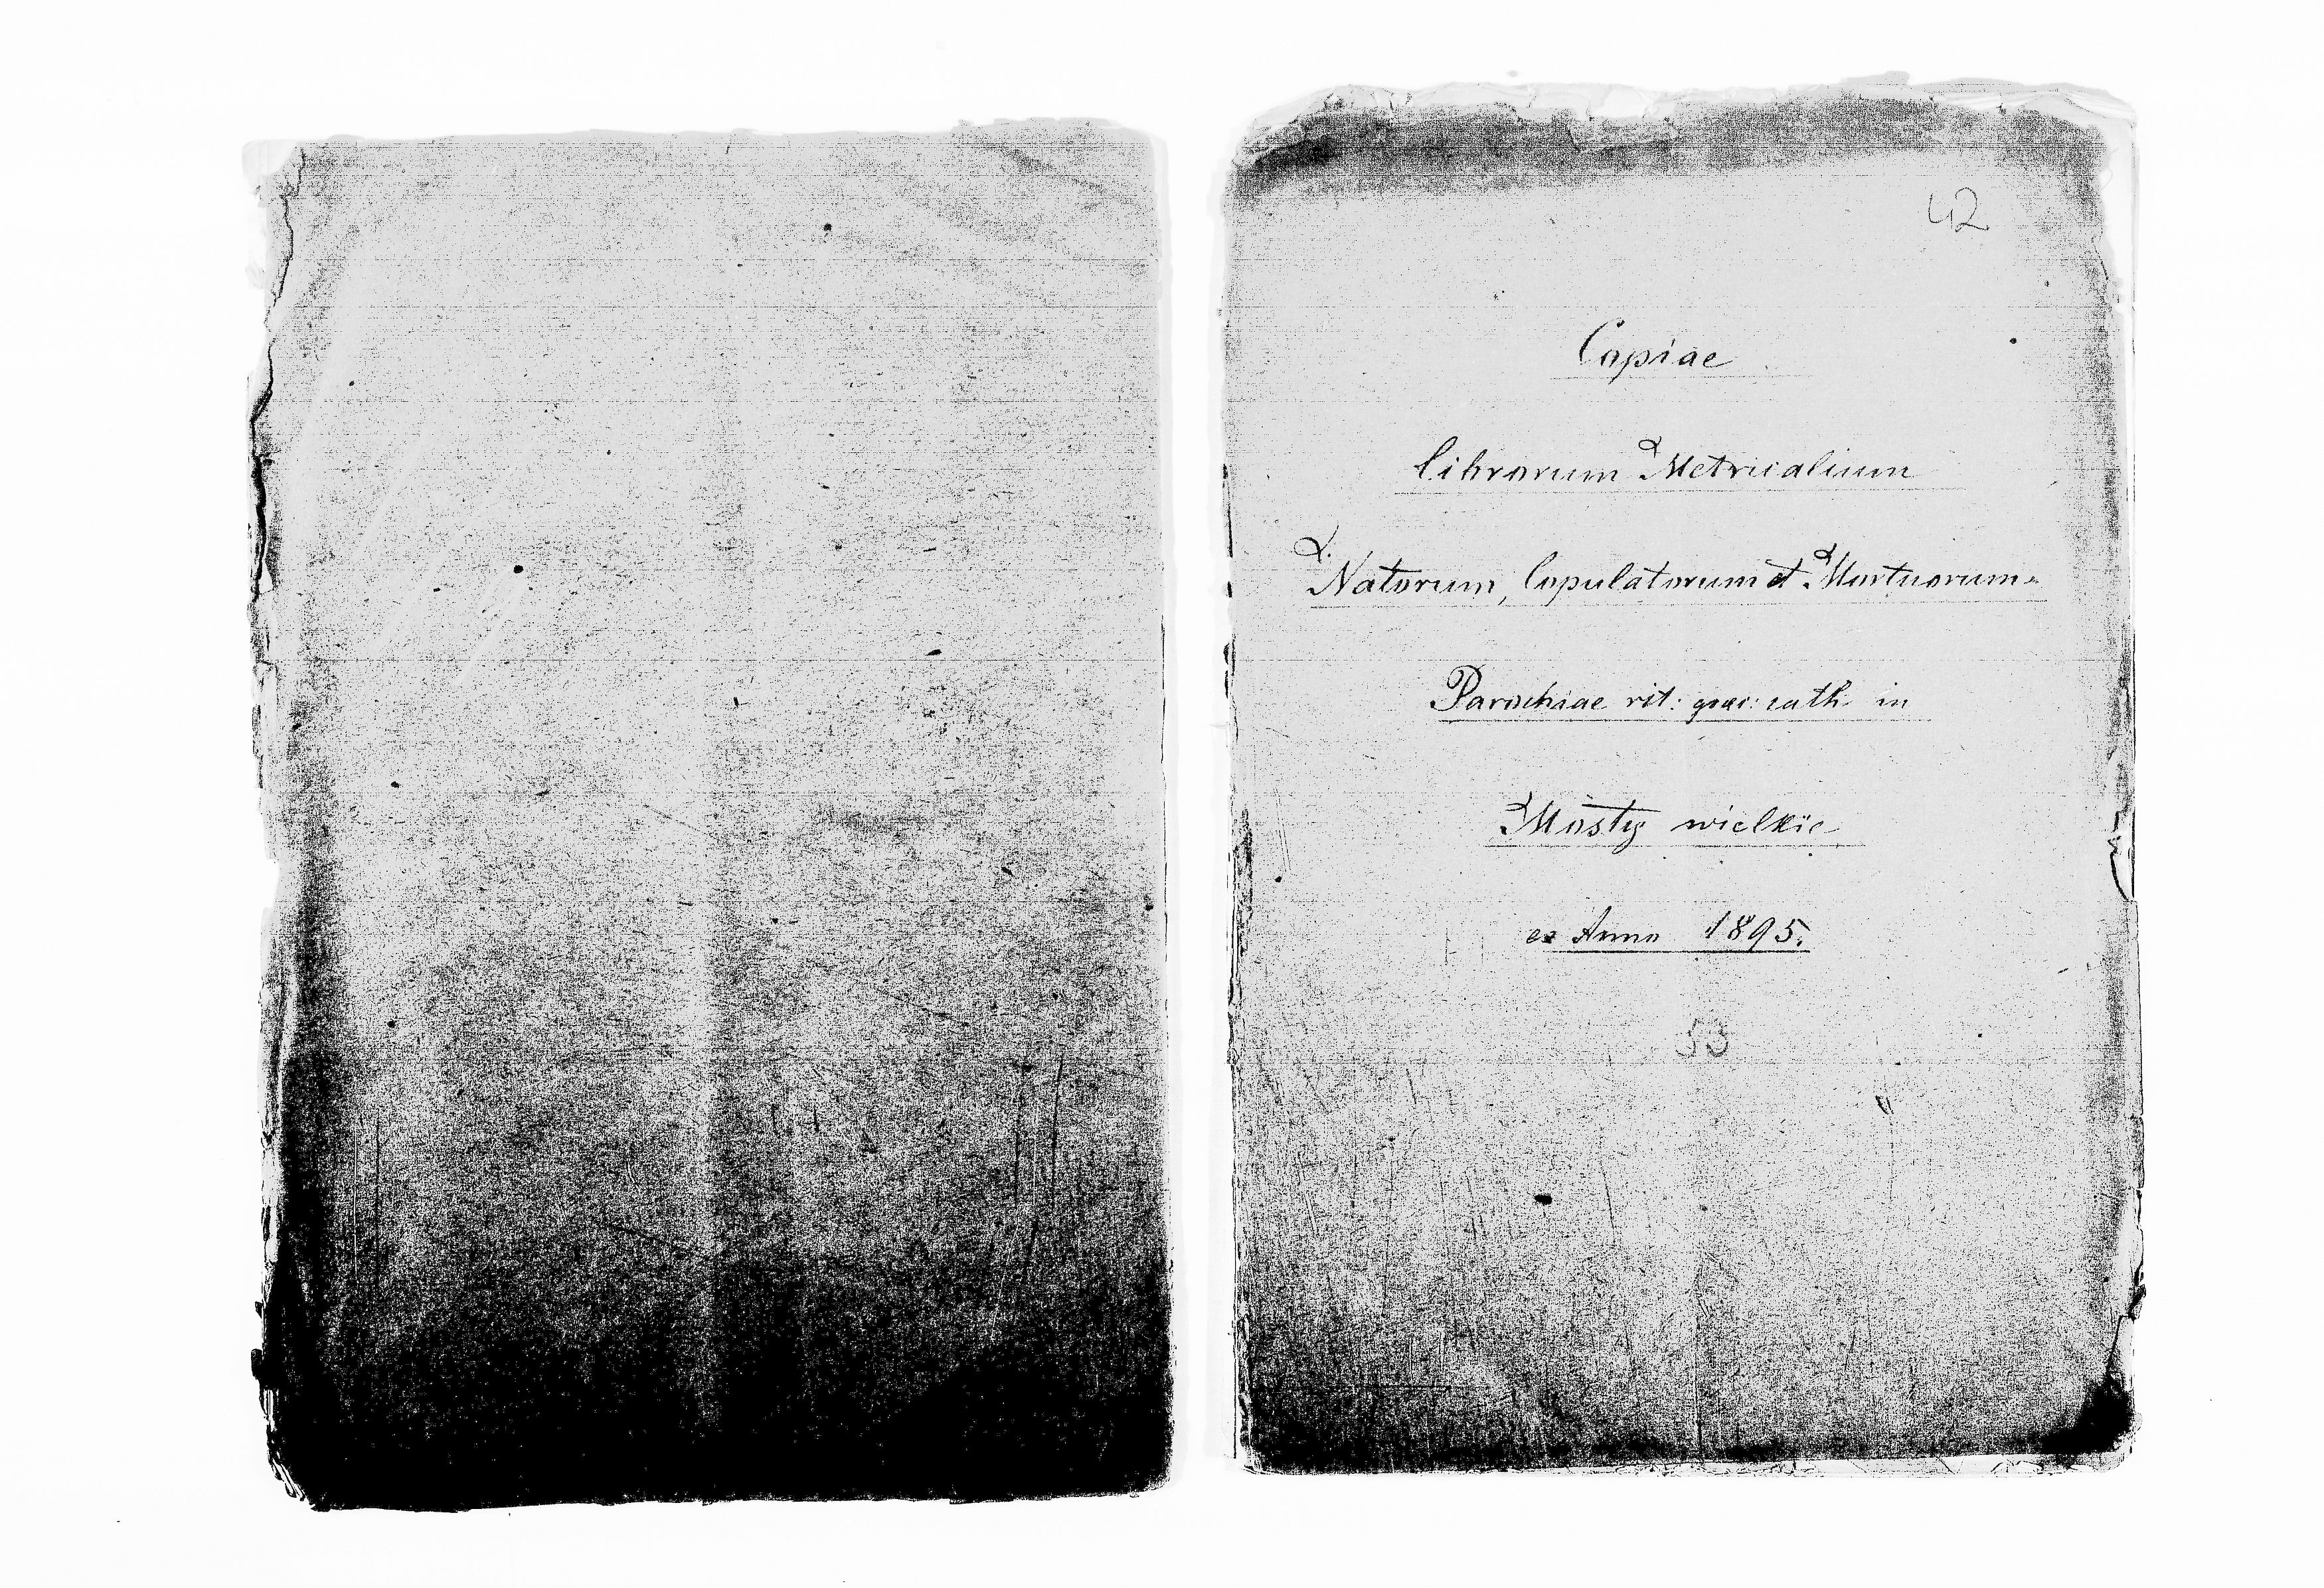 42
Copiae
librorum Metricalium
Natorum, Copulatorum et Mortuorum
Parochiae rit: graec: cath in
Mosty wielkie
ex Anno 1895.
53